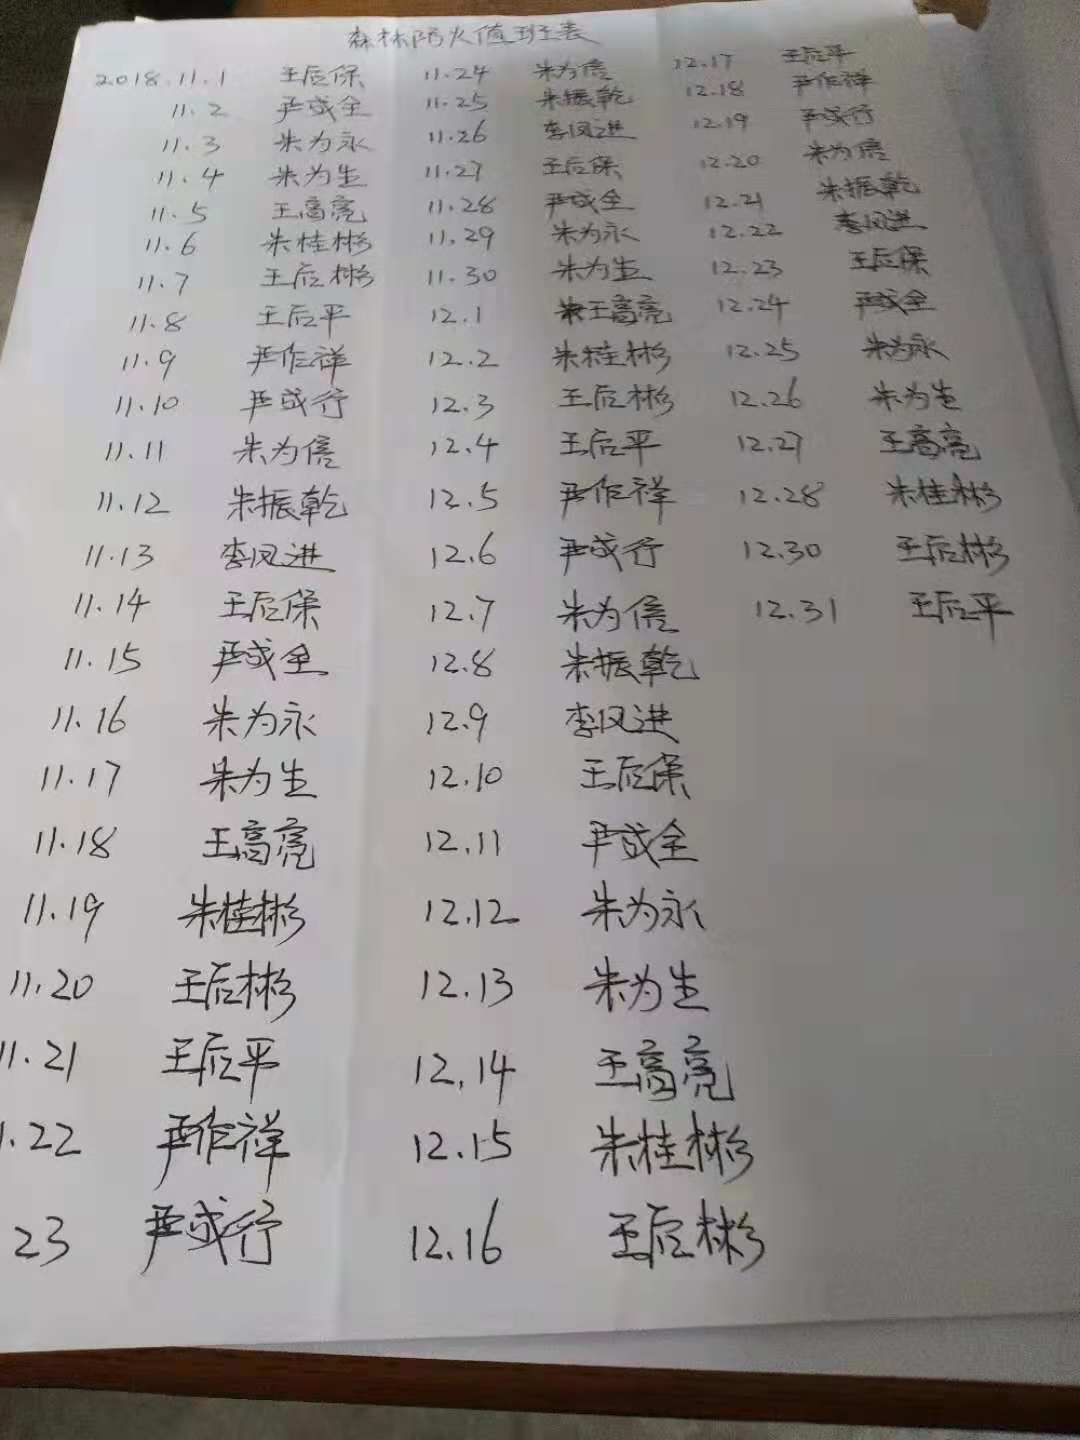 森林防火值班表
2018.11.1 王后保
11.2 严成全
11.3 朱为永
11.4 朱为生
11.5 王高亮
11.6 朱桂彬
11.7 王后彬
11.8 王后平
11.9 严作祥
11.10 严成行
11.11 朱为信
11.12 朱振乾
11.13 李凤进
11.14 王后保
11.15 严成全
11.16 朱为永
11.17 朱为生
11.18 王高亮
11.19 朱桂彬
11.20 王后彬
11.21 王后平
1.22 严作祥
23 严成行
11.24 朱为信
11.25 朱振乾
11.26 李凤进
11.27 王后保
11.28 严成全
11.29 朱为永
11.30 朱为生
12.1 王高亮
12.2 朱桂彬
12.3 王后彬
12.4 王后平
12.5 严作祥
12.6 严成行
12.7 朱为信
12.8 朱振乾
12.9 李凤进
12.10 王后保
12.11 严成全
12.12 朱为永
12.13 朱为生
12.14 王高亮
12.15 朱桂彬
12.16 王后彬
12.17 王后平
12.18 严作祥
12.19 严成行
12.20 朱为信
12.21 朱振乾
12.22 李凤进
12.23 王后保
12.24 严成全
12.25 朱为永
12.26 朱为生
12.27 王高亮
12.28 朱桂彬
12.30 王后彬
12.31 王后平